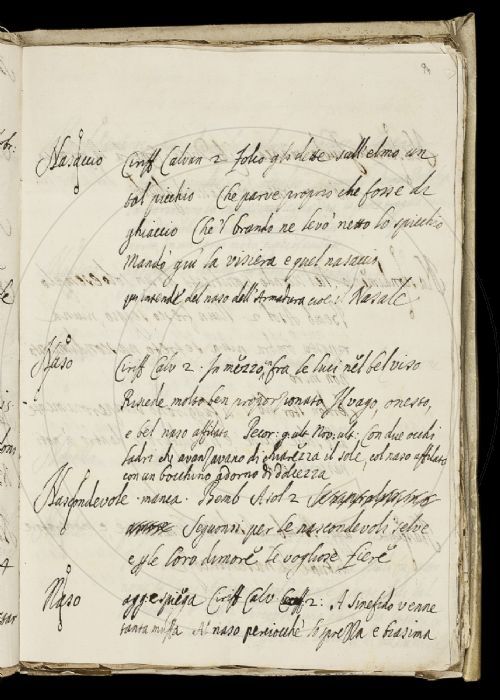 94
Nasaccio Ciriff Calvan 2 Folco gli dette sull'elmo un
bal picchio Che parve proprio che fosse di
ghiaccio Che 'l brando ne levò netto lo spicchio
Mandò giù la visiera e quel nasaccio
qui intende del naso dell'Armatura cioè il Nasale
Naso Ciriff Calv 2. In mezzo, fra le luci nel bel viso
Risiede molto ben proporzionato Il vago, onesto,
e bel naso affilato Pecor: g: ult: Nov: ult: Con due occhi
ladri ch'avanzavano di chiarezza il sole, col naso affilato
con un bocchino adorno di dolcezza
Nascondevole. manca. Bemb Asol 2
Seguonsi per le nascondevoli selve
e per le loro dimore le vogliose fiere
Naso agg e spiega Ciriff Calv 2: A Sinefido venne
tanta muffa Al naso perciocchè lo sprezza e biasima